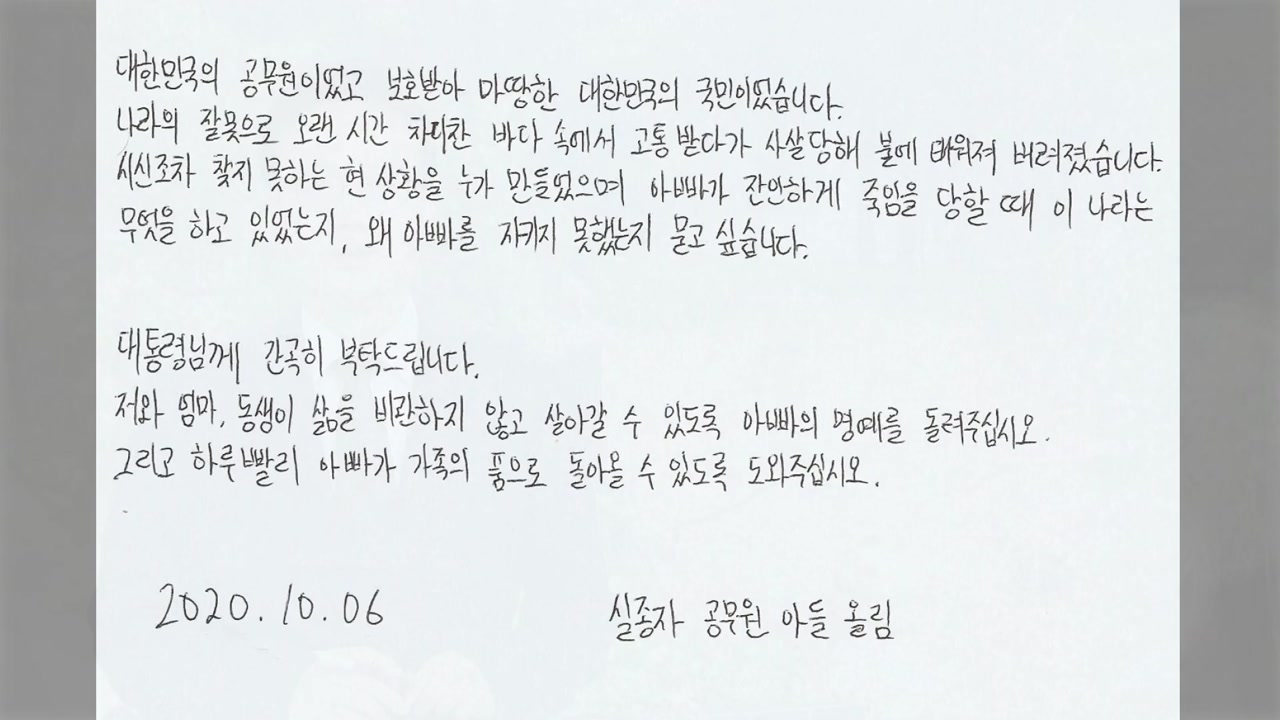 대한민국의 공무원이었고 보호받아 마땅한 대한민국의 국민이었습니다.
나라의 잘못으로 오랜 시간 차디찬 바다 속에서 고통 받다가 사살당해 불에 태워져 버려졌습니다.
시신조차 찾지 못하는 현 상황을 누가 만들었으며 아빠가 잔인하게 죽임을 당할 때 이 나라는
무엇을 하고 있었는지, 왜 아빠를 지키지 못했는지 묻고 싶습니다.
대통령님께 간곡히 부탁드립니다.
저와 엄마, 동생이 삶을 비관하지 않고 살아갈 수 있도록 아빠의 명예를 돌려주십시오.
그리고 하루빨리 아빠가 가족의 품으로 돌아올 수 있도록 도와주십시오.
2020.10.06 실종자 공무원 아들 올림